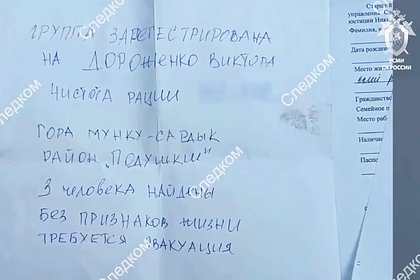 ГРУППА ЗАРЕГЕСТРИРОВАНА
НА ДОРОЖЕНКО ВИКТОРА
ЧИСТОТА РАЦИИ
ГОРА МУНКУ-САРДЫК
РАЙОН "ПОДУШКИ"
3 ЧЕЛОВЕКА НАЙДЕНЫ
БЕЗ ПРИЗНАКОВ ЖИЗНИ
ТРЕБУЕТСЯ ЭВАКУАЦИЯ
Следком
Следком
Следком
Следком
Старший
управления След
юстиции Нико
Фамилия,
Дата рожден
Место
Гражданство
Семейное п
Место рабо
Наличие
Паспо